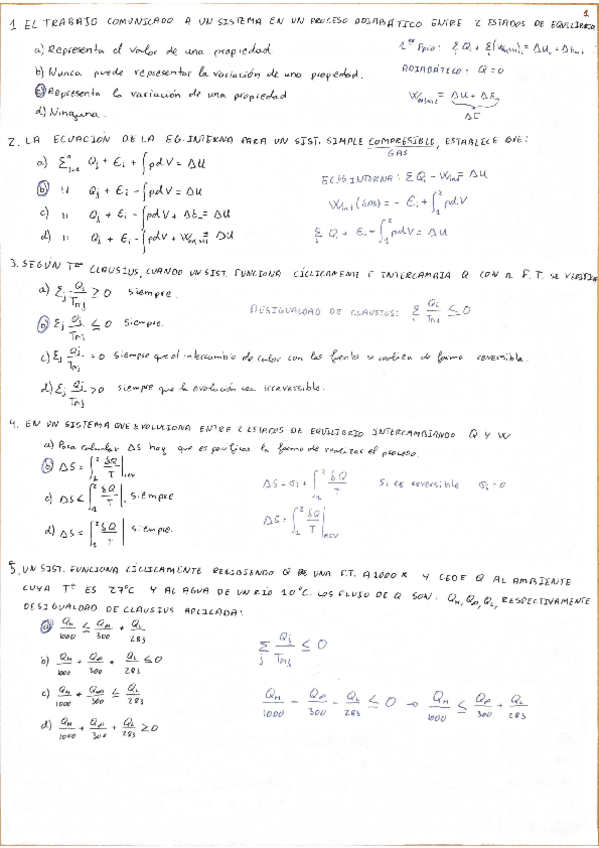 1
1 EL TRABAJO COMUNICADO A UN SISTEMA EN UN PROCESO ADIABÁTICO ENTRE 2 ESTADOS DE EQUILIBRIO:
a) Representa el valor de una propiedad.
1er Ppio: ΣQ + Σ
b) Nunca puede representar la variación de una propiedad.
ADIABÁTICO: Q=0
c) Representa la variación de una propiedad
d) Ninguna.
ΔE
2. LA ECUACIÓN DE LA EG. INTERNA PARA UN SIST. SIMPLE COMPRESIBLE, ESTABLECE QUE:
GAS
a) Σ Qj + Ei + ∫pdV = ΔU
b) " Qj + Ei - ∫pdV = ΔU
c) " Qj + Ei - ∫pdV + ΔEm = ΔU
d) " Qj + Ei - ∫pdV + = ΔU
INTERNA: Σ Qi - Wint = ΔU
Wint (GAS) = - Ei + ∫₁² pdV
Σ Qi + Ei - ∫₁² pdV = ΔU
3. SEGÚN Tma CLAUSIUS, CUANDO UN SIST. FUNCIONA CÍCLICAMENTE E INTERCAMBIA Q CON n F.T. SE VERIFICA
a) Σj Qj/Tmj ≥ 0 siempre.
b) Σj Qj/Tmj ≤ 0 siempre.
DESIGUALDAD DE CLAUSIUS: Σ Qi/Tmi ≤ 0
c) Σj Qj/Tmj = 0 siempre que el intercambio de calor con las fuentes se realiza de forma reversible.
d) Σj Qj/Tmj > 0 siempre que la evolución sea irreversible.
4. EN UN SISTEMA QUE EVOLUCIONA ENTRE 2 ESTADOS DE EQUILIBRIO INTERCAMBIANDO Q Y W
a) Para calcular ΔS hay que especificar la forma de realizar el proceso.
b) ΔS = ∫₁² δQ/T |rev
c) ΔS < ∫₁² δQ/T |, siempre
d) ΔS = ∫₁² δQ/T | siempre.
ΔS = σi + ∫₁² δQ/T Si es reversible σi = 0
ΔS = ∫₁² δQ/T |rev
5. UN SIST. FUNCIONA CÍCLICAMENTE RECIBIENDO Q DE UNA F.T. A 1000 K Y CEDE Q AL AMBIENTE
CUYA Tª ES 27ºC Y AL AGUA DE UN RÍO 10ºC. LOS FLUJO DE Q SON: QM, QA, QL, RESPECTIVAMENTE
DESIGUALDAD DE CLAUSIUS APLICADA:
a) QM/1000 ≤ QA/300 + QL/283
Σj Qj/Tmj ≤ 0
b) QM/1000 + QA/300 + QL/283 ≤ 0
c) QM/1000 + QA/300 ≤ QL/283
QM/1000 - QA/300 - QL/283 ≤ 0 → QM/1000 ≤ QA/300 + QL/283
d) QM/1000 + QA/300 + QL/283 ≥ 0